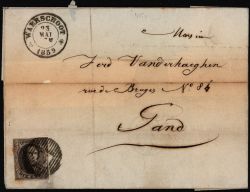 WAERSCHOOT
23
MAI
1859
Monsieur
Ferd Vanderhaeghen
rue de Bruges No 84
Gand